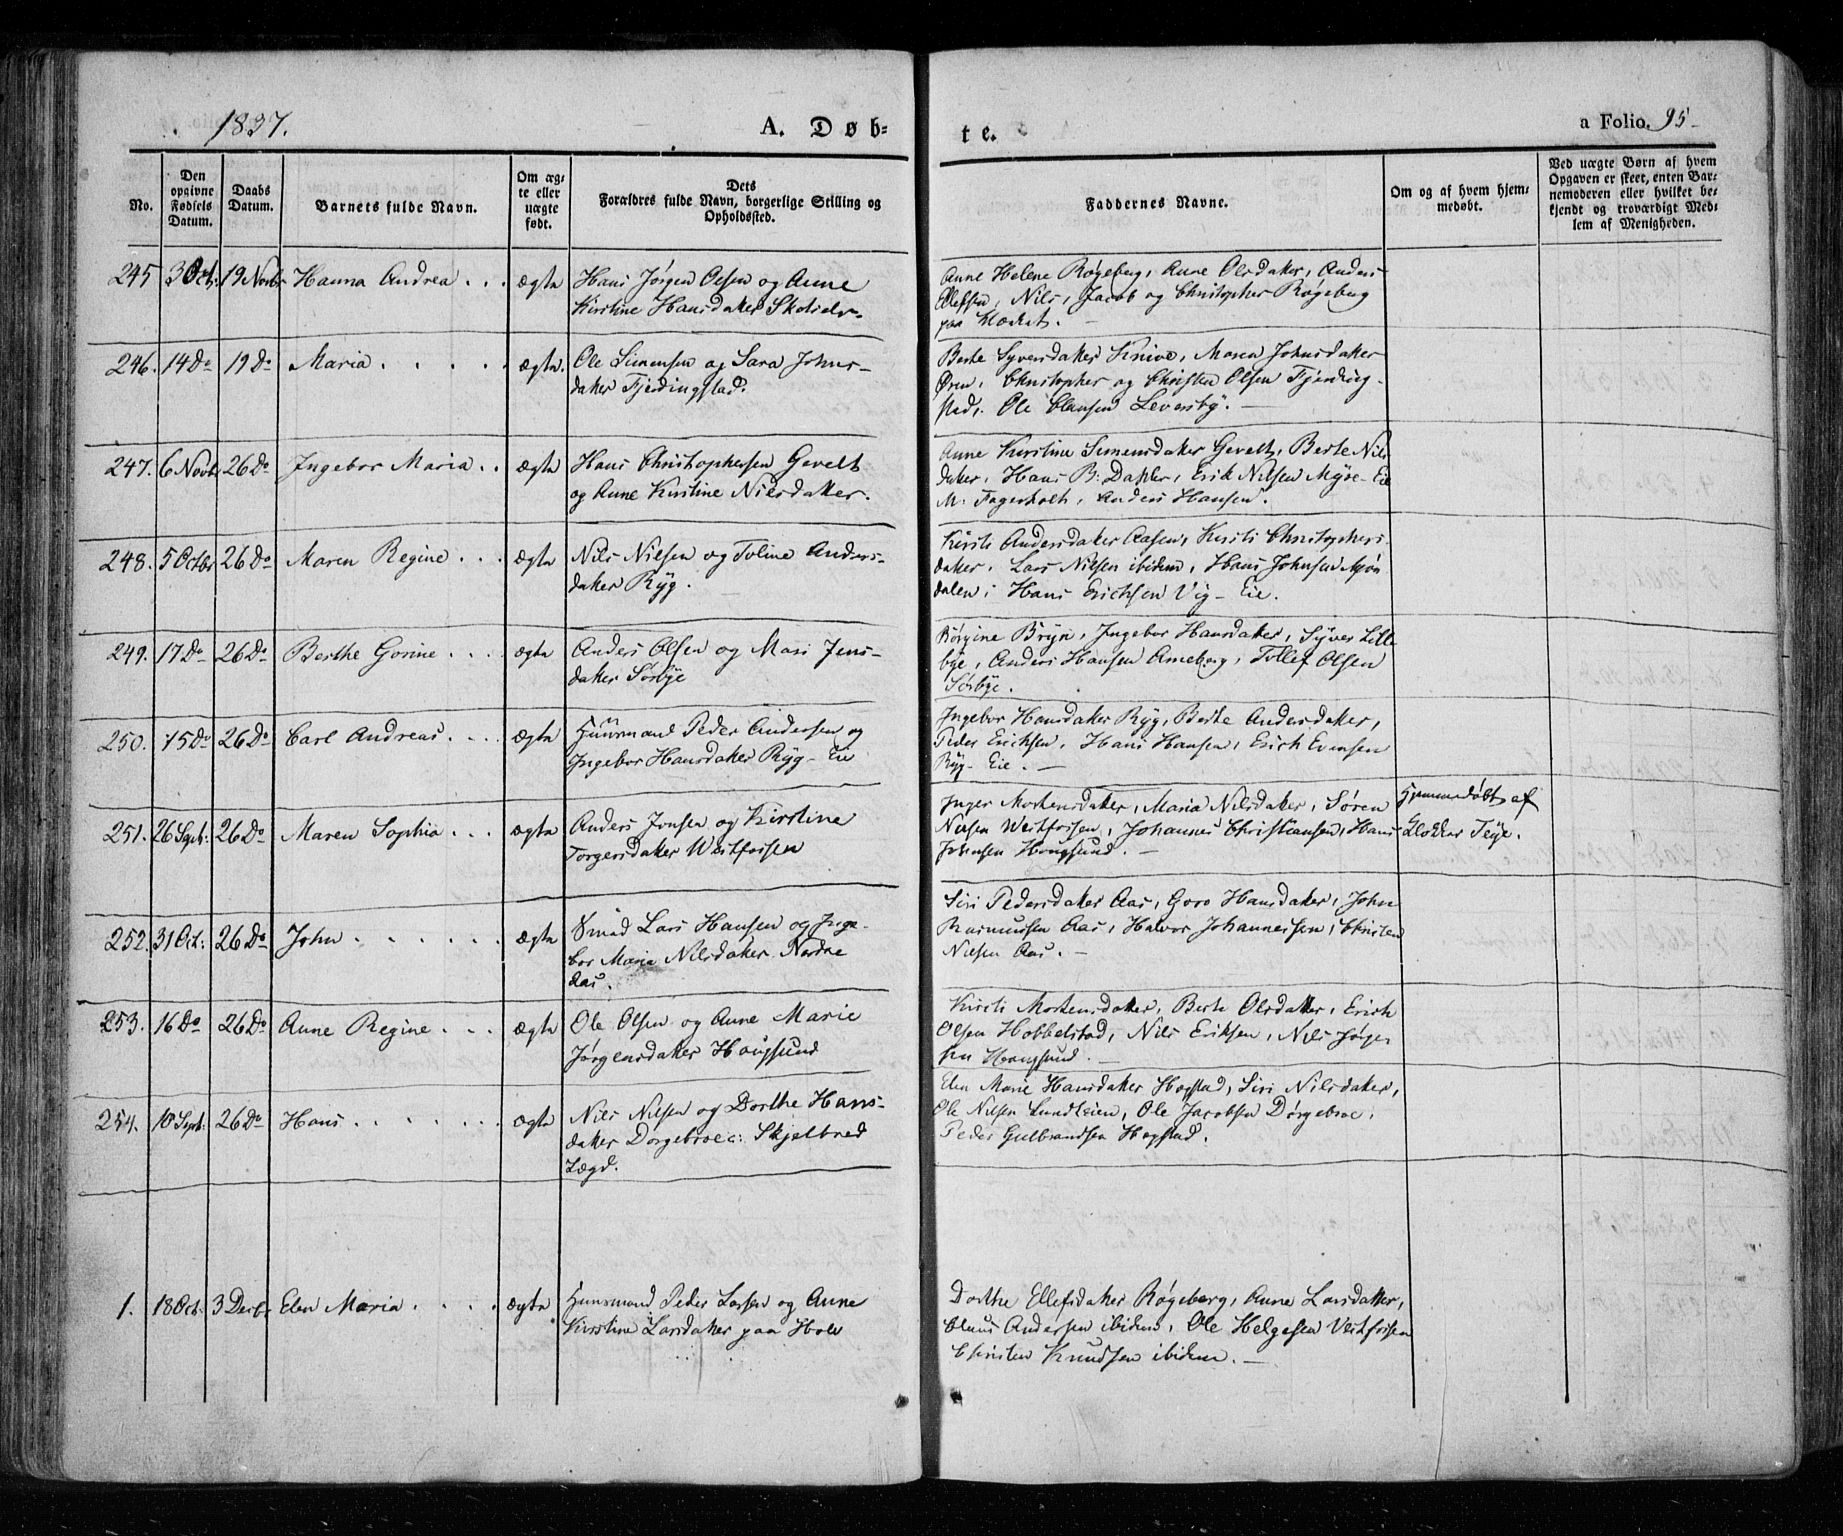 1837.
A. Døb-
te.
a Folio. 95
No.
Den opgivne Fødsels Datum.
Daabs Datum.
Barnets fulde Navn.
Om ægte eller uægte født.
Dets Forældres fulde Navn, borgerlige Stilling og Opholdssted.
Faddernes Navne.
Om og af hvem hjemmedøbt.
Ved uægte Børn af hvem Opgaven er skeet, enten Barnemoderen eller hvilket bekjendt og troværdigt Medlem af Menigheden.
245 3 Oct: 19 Novbr Hanna Andrea . . . ægta Hans Jørgen Olsen og Anne
Kirstine Hansdaker
Anne Helene Røgeberg, Anne Olsdaker, Anders
Ellefsen, Nils, Jacob og Christopher Røgeberg
paa
246. 14 Do 19 Do Maria . . . . . ægta. Ole Simensen og Sara Johns-
daker Fjerdingstad.
Berte Syversdaker Knive, Maren Johnsdaker
Øren, Christopher og Christen Olsen Fjerding-
stad, Ole Clausen Leversby. —
247. 6 Novbr 26 Do Ingebor Maria . . ægta Hans Christophersen Gevelt
og Anne Kirstine Nilsdaker.
Anne Kirstine Simensdaker Gevelt, Berte Nils
daker, Hans B: Dahler, Erik Nilsen Myre-Eie
M: Fagerholt, Anders Hansen.
248. 5 Octbr 26 Do Maren Regine . . . ægta Nils Nilsen og Toline Anders-
daker Ryg.
Kirsti Andersdaker Aasen, Kirsti Christophers
daker, Lars Nilsen ibidem, Hans Johnsen Mjøn
dalen, Hans Erichsen Vig-Eie.
249. 17 Do 26 Do Berthe Gorine . . . . ægta Anders Olsen og Mari Jens-
daker Sørbye
Børgine Bryn, Ingebor Hansdaker, Syver Lille
bye, Anders Hansen Arneberg, Tollef Olsen
Sørbye.
250. 15 Do 26 Do Carl Andreas . . . ægta Huusmand Peder Andersen og
Ingebor Hansdaker Ryg-Eie
Ingebor Hansdaker Ryg, Berte Andersdaker,
Peder Erichsen, Hans Hansen, Erich Evensen
Ryg-Eie. —
251. 26 Sept: 26 Do Maren Sophia . . . ægta Anders Jonsen og Kirstine
Torgersdaker Westfossen
Inger Mortensdaker, Maria Nilsdaker, Søren
Nilsen Westfossen, Johannes Christiansen, Hans
Johnsen Hougsund. —
Hjemmedøbt af
Klokker Teye.
252. 31 Oct: 26 Do John . . . . . ægta Smed Lars Hansen og Inge-
bor Maria Nilsdaker Nordre
Aas.
Siri Pedersdaker Aas, Goro Hansdaker, John
Rasmussen Aas, Halvor Johannessen, Christen
Nilsen Aas. —
253. 16 Do 26 Do Anne Regine . . . ægta Ole Olsen og Anne Marie
Jørgensdaker Hougsund
Kirsti Mortensdaker, Berte Olsdaker, Erich
Olsen Hobbelstad, Nils Eriksen, Nils Jørgen
sen Hougsund. —
254. 10 Sept: 26 Do Hans . . . . . . ægta Nils Nilsen og Dorthe Hans-
daker Dørgebroe c: Skjelbred
Lægd.
Elen Marie Hansdaker Hogstad, Siri Nilsdaker,
Ole Nilsen Lundteien, Ole Jacobsen Dørgebroe,
Peder Gulbrandsen Hogstad.
1. 18 Oct: 3 Decbr Elen Maria . . . . ægta Huusmand Peder Larsen og Anne
Kirstine Larsdaker paa Hole
Dorthe Ellefsdaker Røgeberg, Anne Larsdaker,
Claus Andersen ibidem, Ole Helgesen Vestfossen
Christen Knudsen ibidem. —